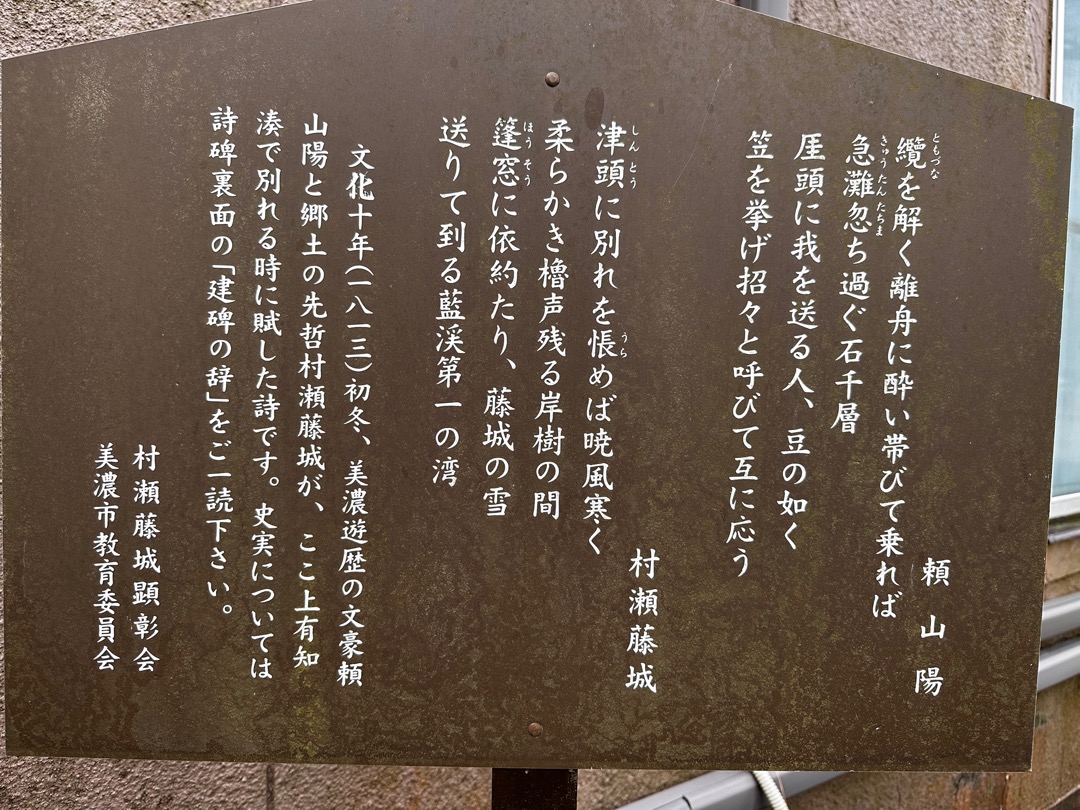 頼山陽
纜を解く離舟に酔い帯びて乗れば
急灘忽ち過ぐ石千層
厓頭に我を送る人、豆の如く
笠を挙げ招々と呼びて互に応う
村瀬藤城
津頭に別れを悵めば暁風寒く
柔らかき櫓声残る岸樹の間
篷窓に依約たり、藤城の雪
送りて到る藍渓第一の湾
文化十年(一八一三)初冬、美濃遊歴の文豪頼
山陽と郷土の先哲村瀬藤城が、ここ上有知
湊で別れる時に賦した詩です。史実については
詩碑裏面の「建碑の辞」をご一読下さい。
村瀬藤城顕彰会
美濃市教育委員会